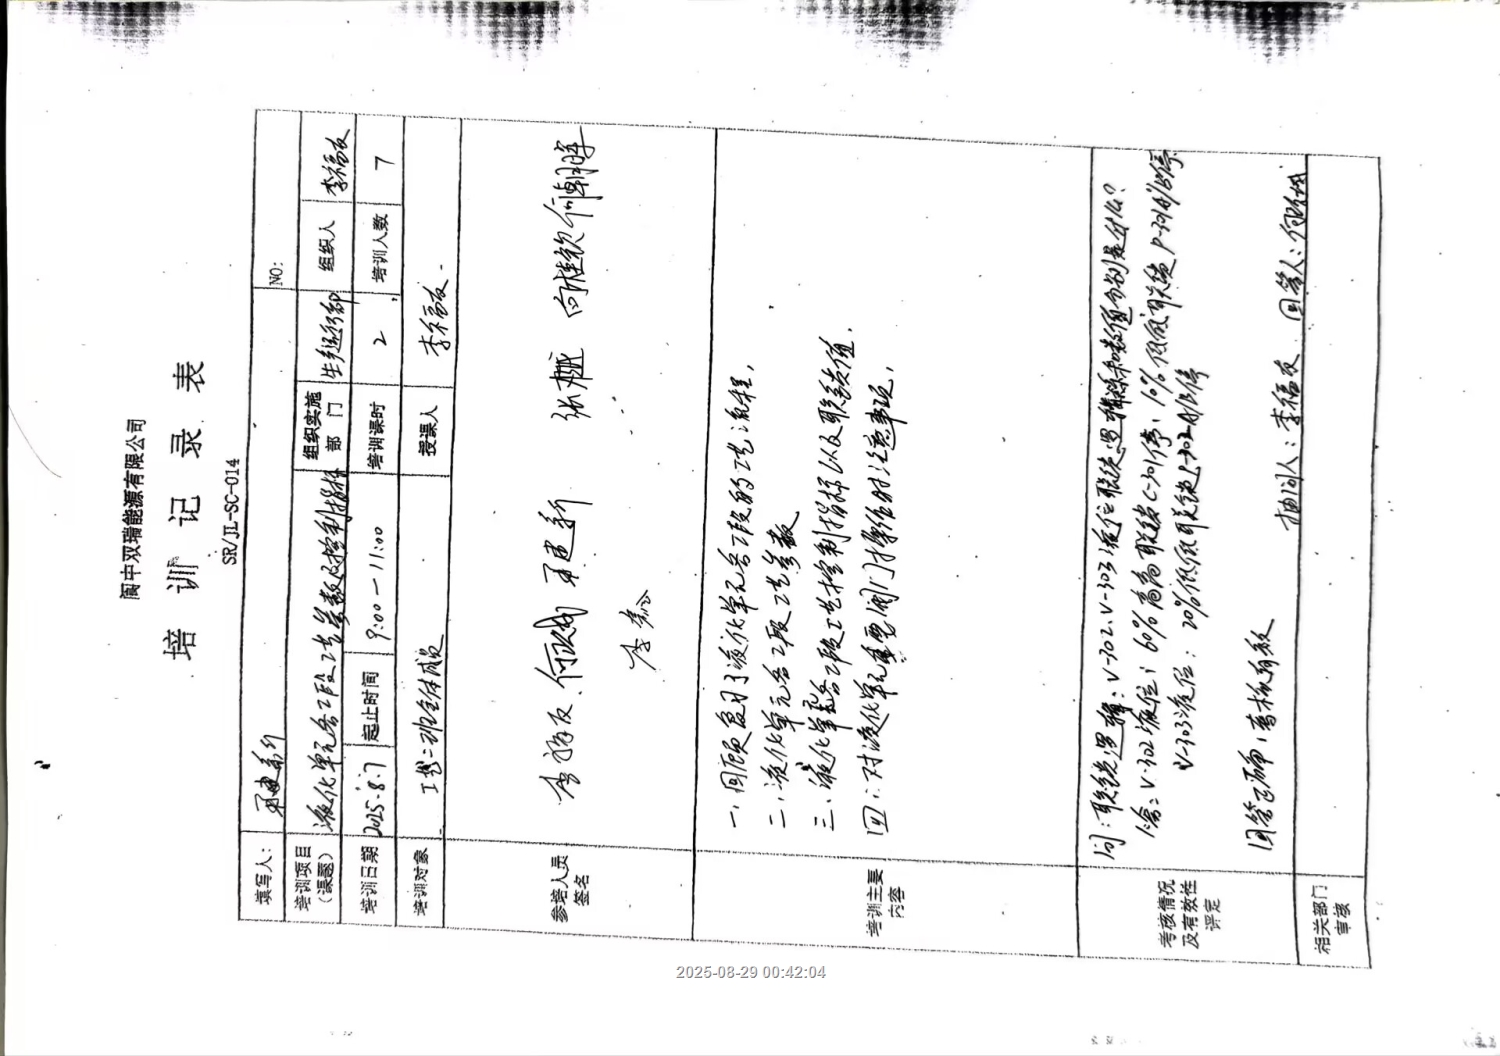 阆中双瑞能源有限公司
培训记录表
SR/JL-SC-014
填写人： NO:
培训项目（课题） 液化单元各工段工艺参数及控制指标 组织实施部门 生产运行部 组织人 李福友
培训日期 2025.8.7 起止时间 9:00—11:00 培训课时 2 培训人数 7
培训对象 工艺二班全体成员 授课人 李福友
参培人员签名 李福友 何政成 张樾 向桂钦 何朝晖
李鑫
培训主要内容
一、回顾复习了液化单元各工段的工艺流程，
二、液化单元各工段工艺参数
三、液化单元各工段工艺控制指标以及联锁值，
四、对液化单元重要阀门操作时注意事项，
考核情况及有效性评定
问：联锁逻辑：V-302、V-303液位联锁逻辑和数值分别是什么？
答：V-302液位：60%高高联锁C-301停；10%低低联锁P-301A/B停
V-303液位：20%低低联锁P-302A/B停
抽问人：李福友 回答人：
回答正确，考核有效
相关部门审核
2025-08-29 00:42:04